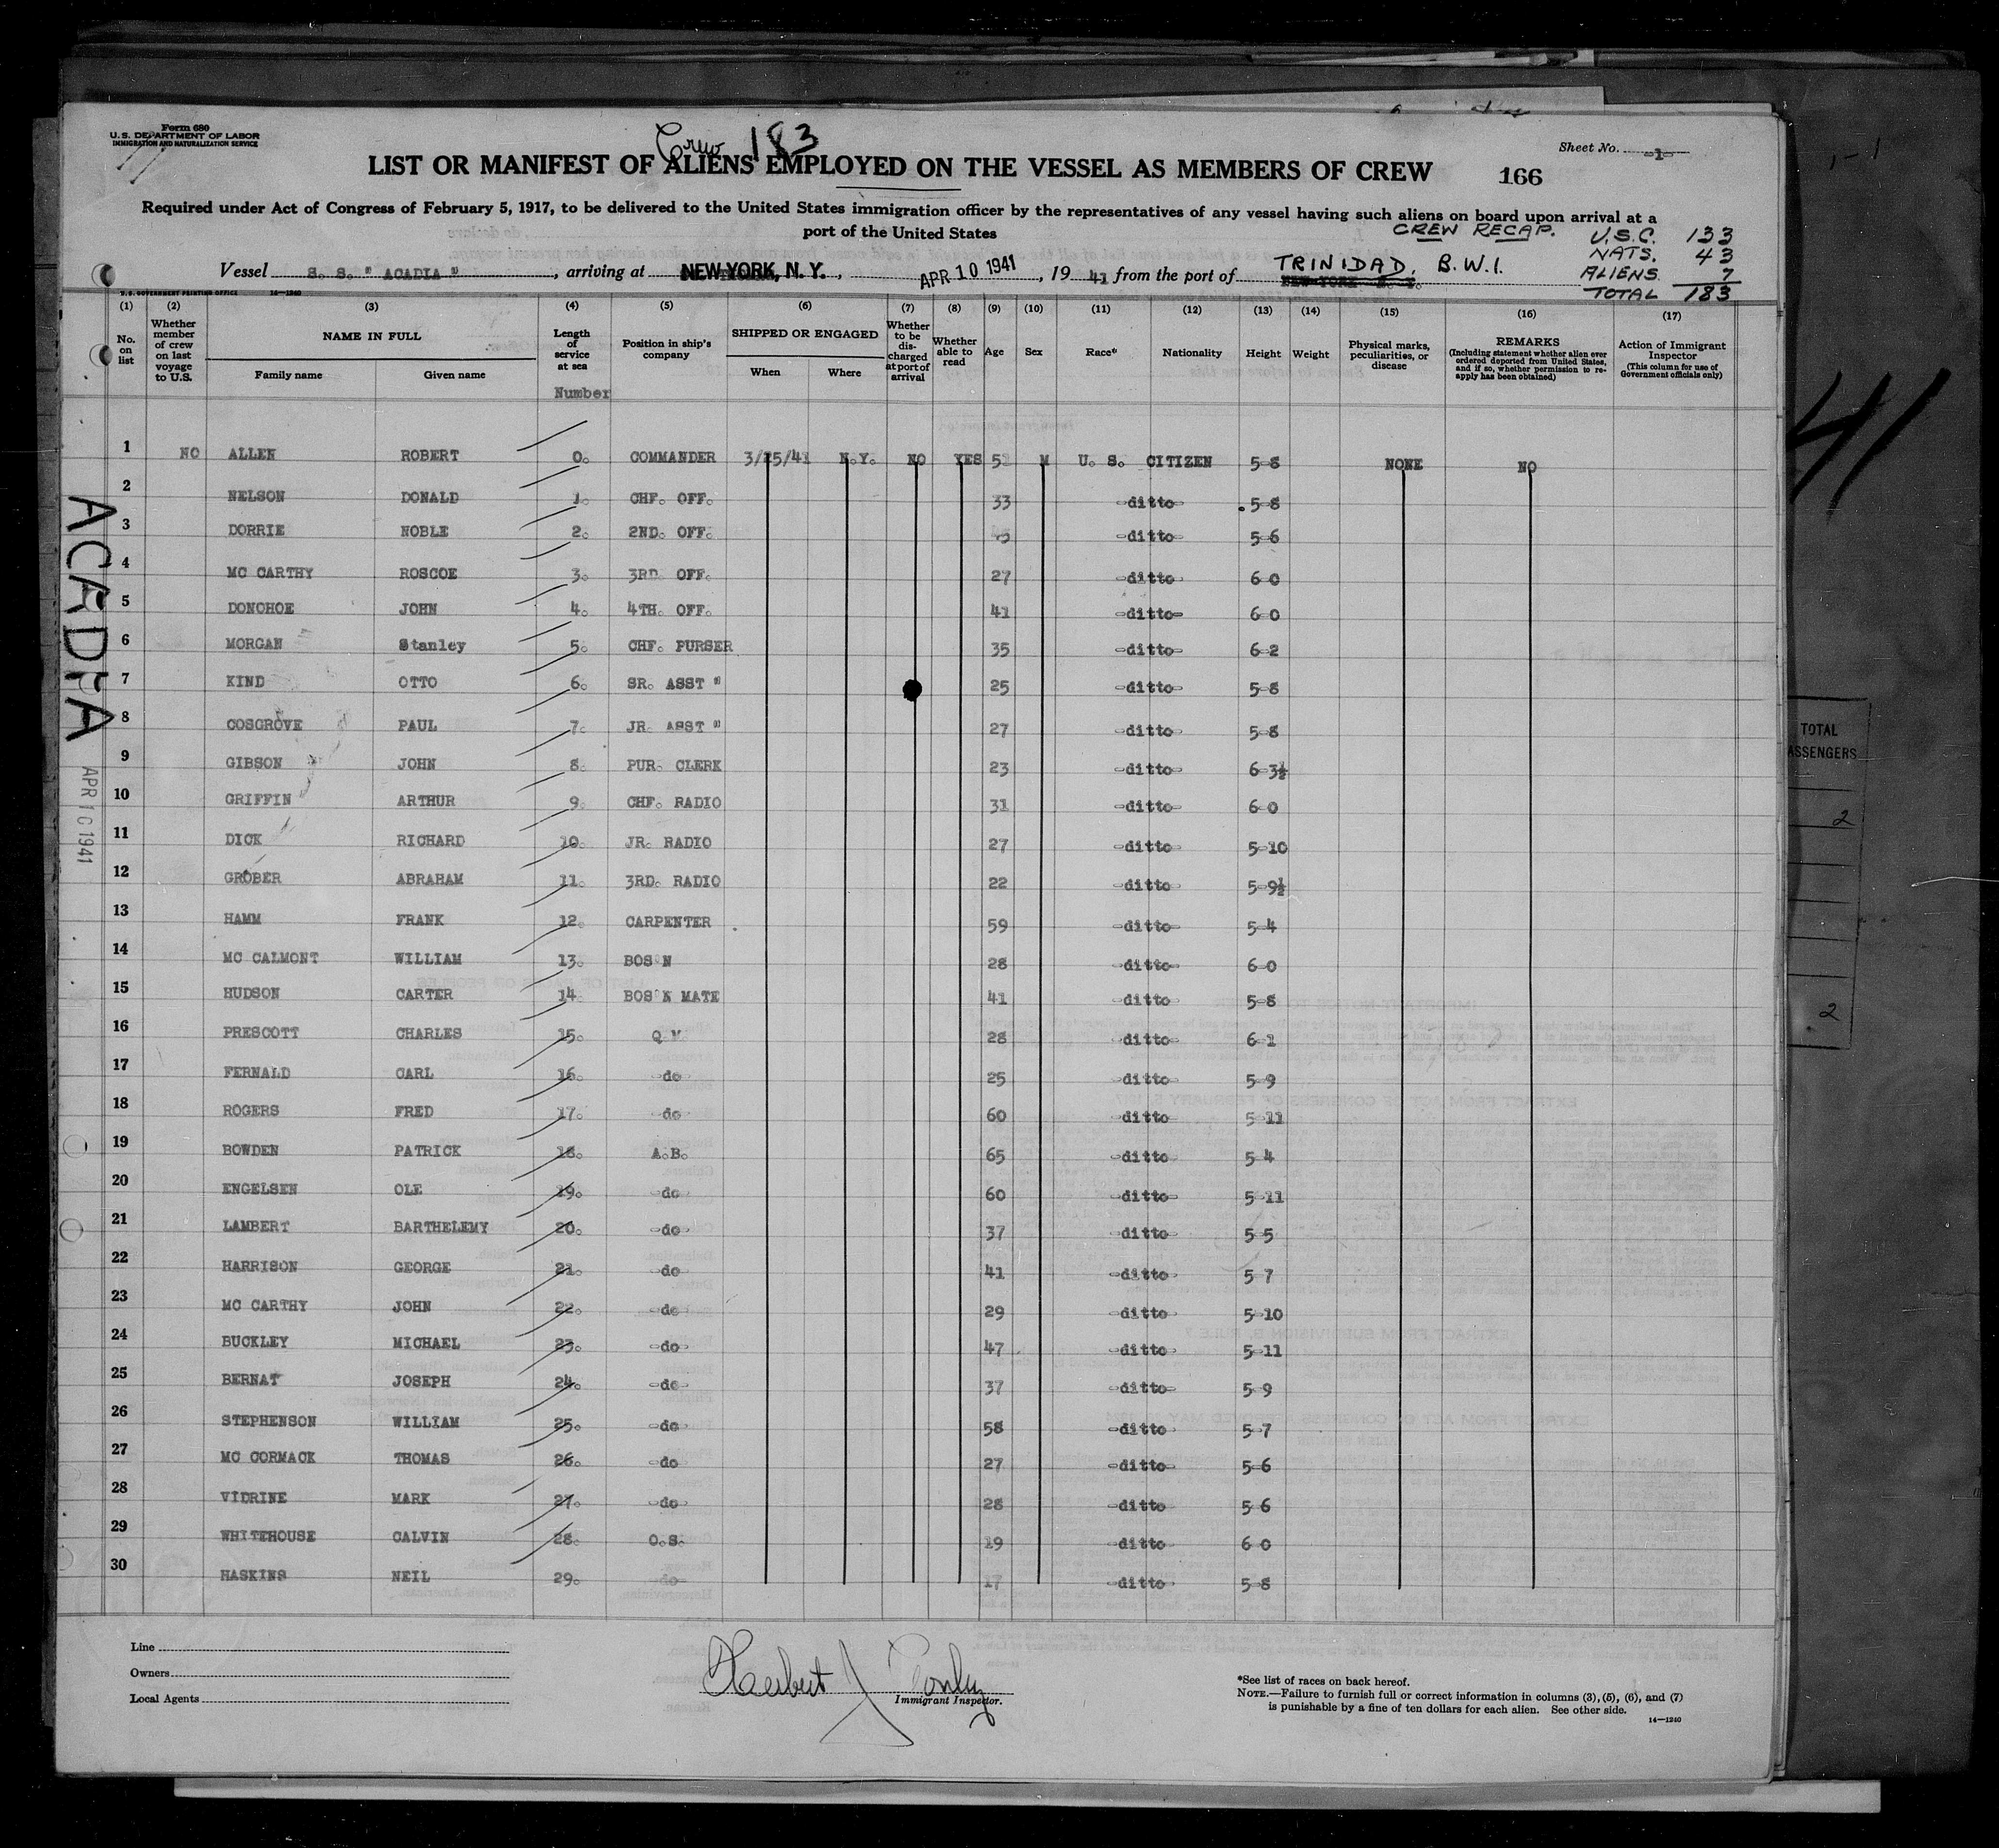 Form 680
U.S. DEPARTMENT OF LABOR
IMMIGRATION AND NATURALIZATION SERVICE
Crew 183
Sheet No. -1-
LIST OR MANIFEST OF ALIENS EMPLOYED ON THE VESSEL AS MEMBERS OF CREW 166
Required under Act of Congress of February 5, 1917, to be delivered to the United States immigration officer by the representatives of any vessel having such aliens on board upon arrival at a
port of the United States
CREW RECAP. U.S.C. 133
NATS. 43
ALIENS. 7
TOTAL 183
Vessel S. S. " ACADIA ", arriving at NEW YORK, N. Y., APR 10 1941, 19 41 from the port of TRINIDAD, B.W.I.
NEW YORK N. Y.
U.S. GOVERNMENT PRINTING OFFICE 14—1240
(1) (2) (3) (4) (5) (6) (7) (8) (9) (10) (11) (12) (13) (14) (15) (16) (17)
No. on list
Whether member of crew on last voyage to U.S.
NAME IN FULL
Family name Given name
Length of service at sea
Number
Position in ship's company
SHIPPED OR ENGAGED
When Where
Whether to be discharged at port of arrival
Whether able to read
Age Sex Race* Nationality Height Weight
Physical marks, peculiarities, or disease
REMARKS
(Including statement whether alien ever ordered deported from United States, and if so, whether permission to reapply has been obtained)
Action of Immigrant Inspector
(This column for use of Government officials only)
1 NO ALLEN ROBERT 0. COMMANDER 3/25/41 N.Y. NO YES 5 M U. S. CITIZEN 5-8 NONE NO
2 NELSON DONALD 1. CHF. OFF. 33 -ditto- 5-8
3 DORRIE NOBLE 2. 2ND. OFF. -ditto- 5-6
4 MC CARTHY ROSCOE 3. 3RD. OFF. 27 -ditto- 6-0
5 DONOHOE JOHN 4. 4TH. OFF. 41 -ditto- 6-0
6 MORGAN Stanley 5. CHF. PURSER 35 -ditto- 6-2
7 KIND OTTO 6. SR. ASST " 25 -ditto- 5-8
8 COSGROVE PAUL 7. JR. ASST " 27 -ditto- 5-8
9 GIBSON JOHN 8. PUR. CLERK 23 -ditto- 6-3½
10 GRIFFIN ARTHUR 9. CHF. RADIO 31 -ditto- 6-0
11 DICK RICHARD 10. JR. RADIO 27 -ditto- 5-10
12 GROBER ABRAHAM 11. 3RD. RADIO 22 -ditto- 5-9½
13 HAMM FRANK 12. CARPENTER 59 -ditto- 5-4
14 MC CALMONT WILLIAM 13. BOS'N 28 -ditto- 6-0
15 HUDSON CARTER 14. BOS'N MATE 41 -ditto- 5-8
16 PRESCOTT CHARLES 15. Q M 28 -ditto- 6-1
17 FERNALD CARL 16. -do- 25 -ditto- 5-9
18 ROGERS FRED 17. -do- 60 -ditto- 5-11
19 BOWDEN PATRICK 18. A.B. 65 -ditto- 5-4
20 ENGELSEN OLE 19. -do- 60 -ditto- 5-11
21 LAMBERT BARTHELEMY 20. -do- 37 -ditto- 5-5
22 HARRISON GEORGE 21. -do- 41 -ditto- 5-7
23 MC CARTHY JOHN 22. -do- 29 -ditto- 5-10
24 BUCKLEY MICHAEL 23. -do- 47 -ditto- 5-11
25 BERNAT JOSEPH 24. -do- 37 -ditto- 5-9
26 STEPHENSON WILLIAM 25. -do- 58 -ditto- 5-7
27 MC CORMACK THOMAS 26. -do- 27 -ditto- 5-6
28 VIDRINE MARK 27. -do- 28 -ditto- 5-6
29 WHITEHOUSE CALVIN 28. O.S. 19 -ditto- 6-0
30 HASKINS NEIL 29. -do- 17 -ditto- 5-8
ACADIA
APR 10 1941
41
TOTAL
PASSENGERS
2
2
Line
Owners
Local Agents
Herbert J
Immigrant Inspector.
*See list of races on back hereof.
NOTE.—Failure to furnish full or correct information in columns (3), (5), (6), and (7)
is punishable by a fine of ten dollars for each alien. See other side.
14—1240